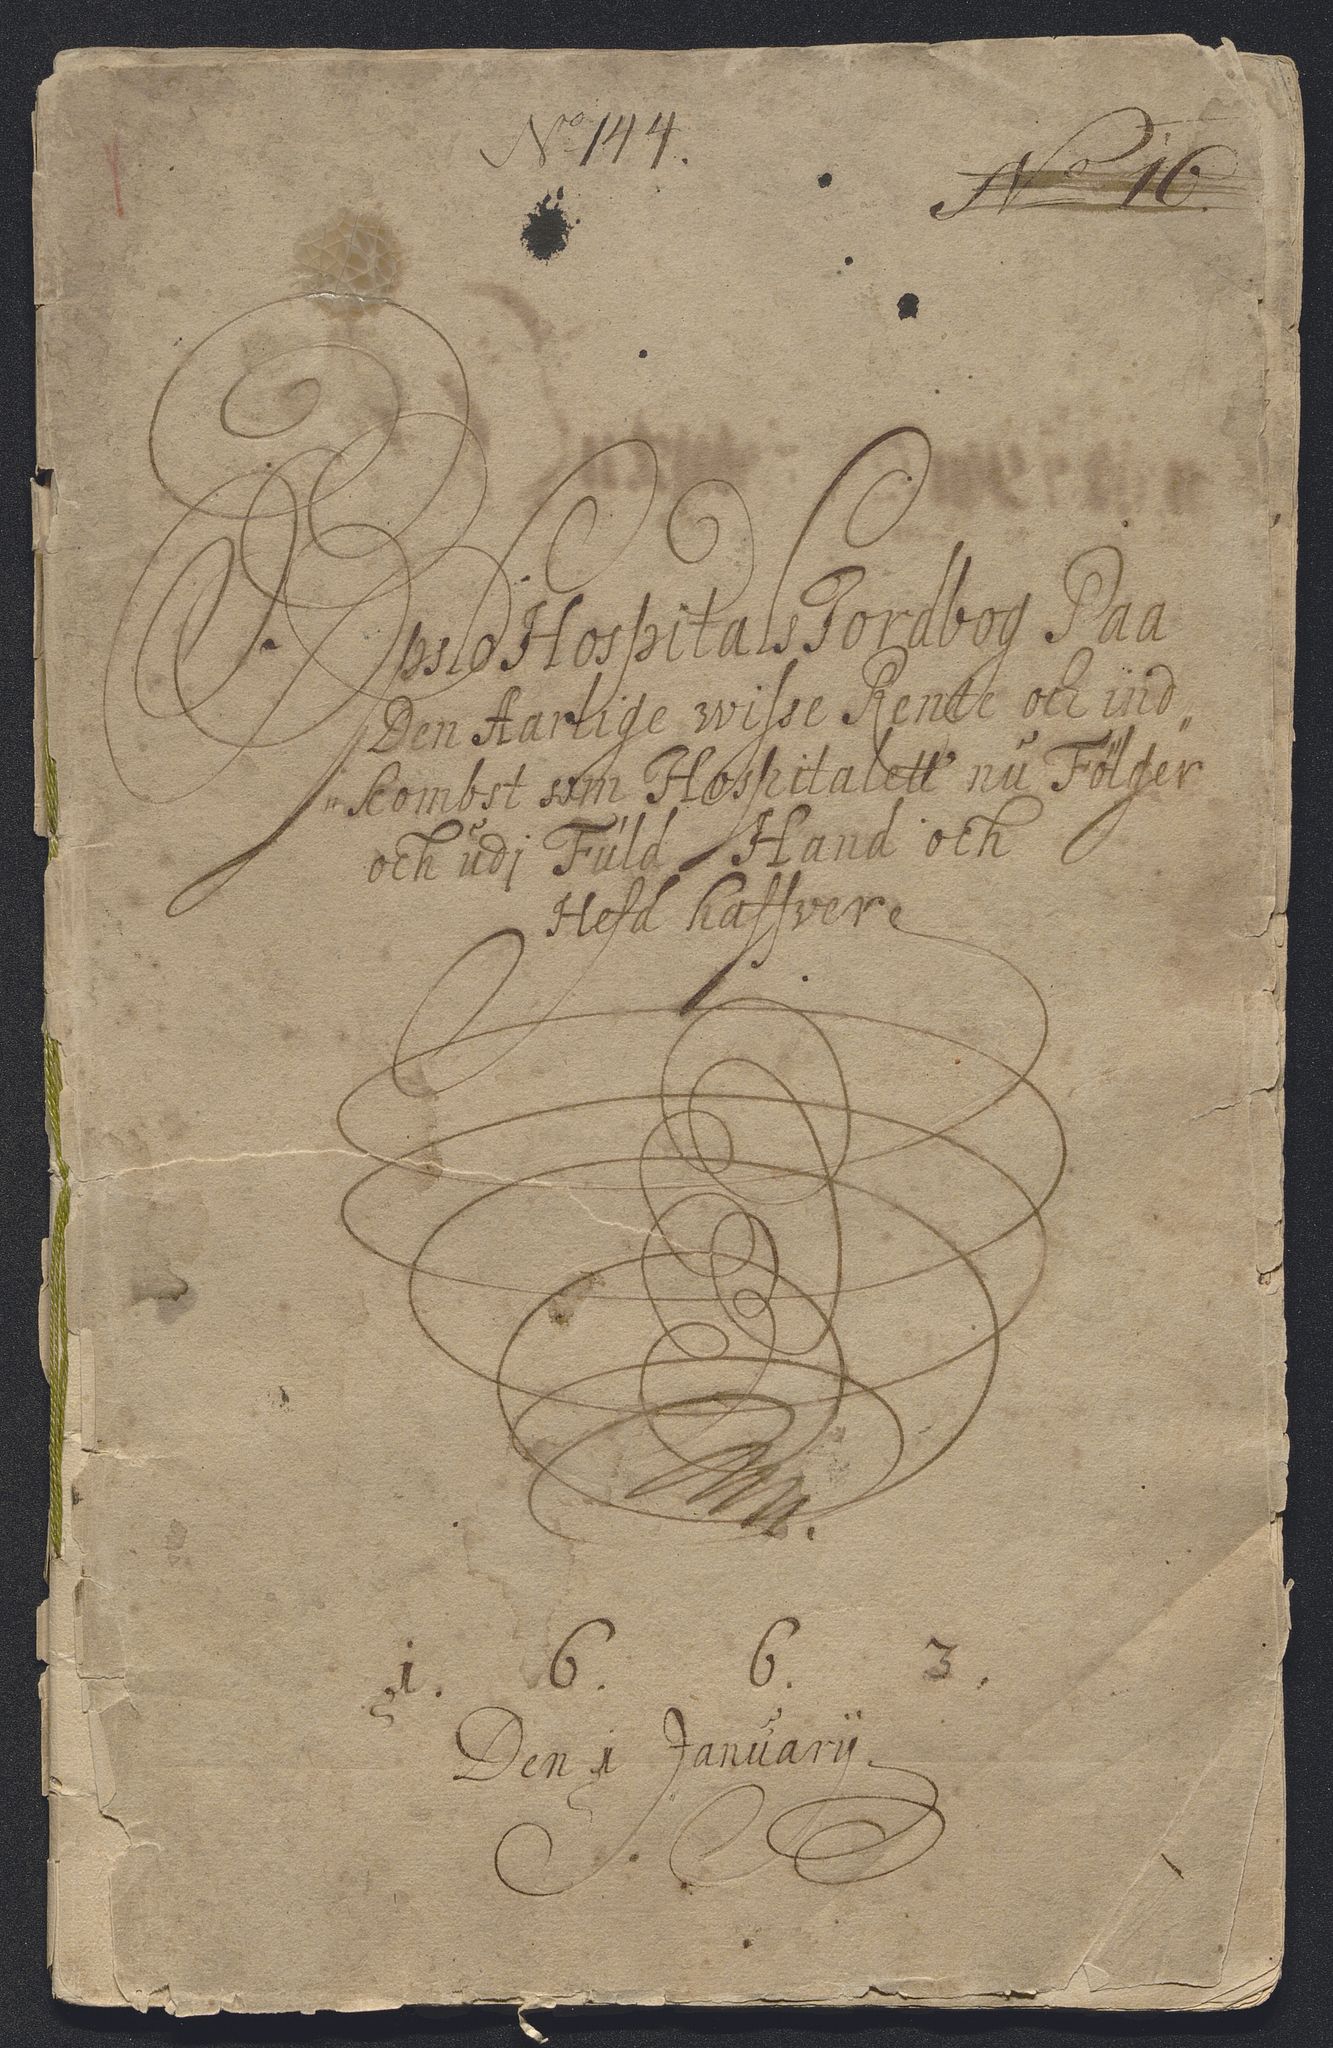 No 144.
No 16.
Opslo Hospitals Jordbog Paa
Den Aarlige wisse Rente och ind„
„kombst som Hospitalett nŭ Fölger
och ŭdj Fŭld Hand och
Hefd haffver.
1. 6. 6. 3.
Den 1 Janŭarÿ